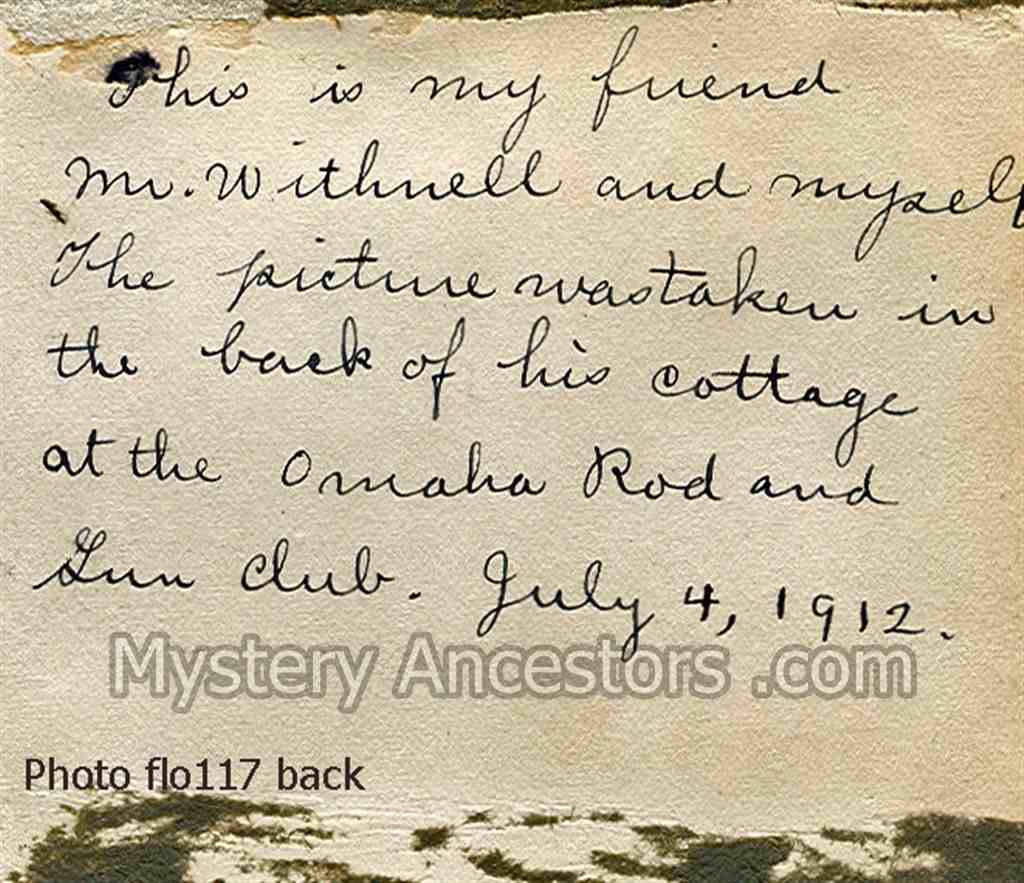 This is my friend
Mr. Withnell and myself
The picture was taken in
the back of his cottage
at the Omaha Rod and
Gun Club. July 4, 1912.
Mystery Ancestors .com
Photo flo117 back